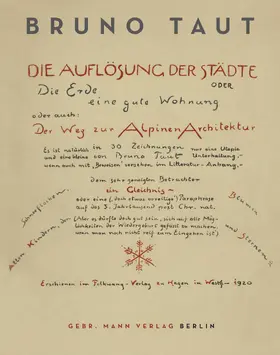 BRUNO TAUT
DIE AUFLÖSUNG DER STÄDTE
ODER
Die Erde
eine gute Wohnung
oder auch:
Der Weg zur Alpinen Architektur
Es ist natürlich in 30 Zeichnungen nur eine Utopie
und eine kleine von Bruno Taut Unterhaltung,-
wenn auch mit „Beweisen" versehen im Litteratur-Anhang,-
dem sehr geneigten Betrachter
ein Gleichnis-
oder eine (doch etwas voreilige) Paraphrase
auf das 3. Jahrtausend post Chr. nat.
(Aber es dürfte doch gut sein, sich mit alle Mög-
lichkeiten der Wiedergeburt gefasst zu machen,
wenn man noch nicht reif zum Eingehen ist)
Allen Kindern, den
Schneeflocken,
Blumen
und Sternen,-
Erschienen im Folkwang-Verlag zu Hagen in Westf- 1920
GEBR. MANN VERLAG BERLIN